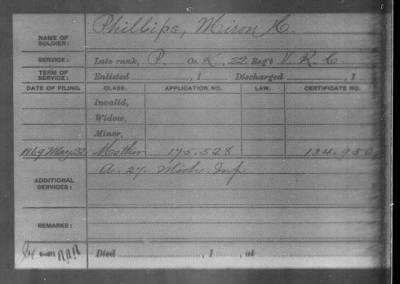 NAME OF SOLDIER: Phillips, Miron H.
SERVICE: Late rank, P. Co. K, 22 Reg't V. R. C
TERM OF SERVICE: Enlisted , 1 Discharged , 1
DATE OF FILING. CLASS. APPLICATION NO. LAW. CERTIFICATE NO.
Invalid,
Widow,
Minor,
1869 May 22 Mother 175.528 134.950
ADDITIONAL SERVICES: A. 27. Mich. Inf
REMARKS:
Died , 1 , at